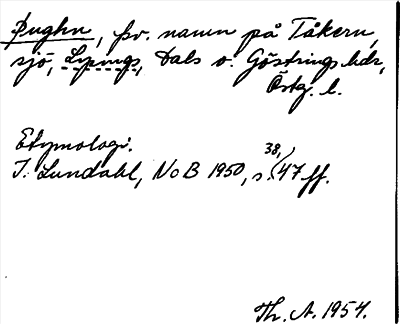 Þughn, fsv. namn på Tåkern,
sjö, Lysings, Dals o. Göstrings hdr,
Östg. l.
Etymologi.
I. Lundahl, NoB 1950, s. 38, 47 ff.
Th. A. 1954.